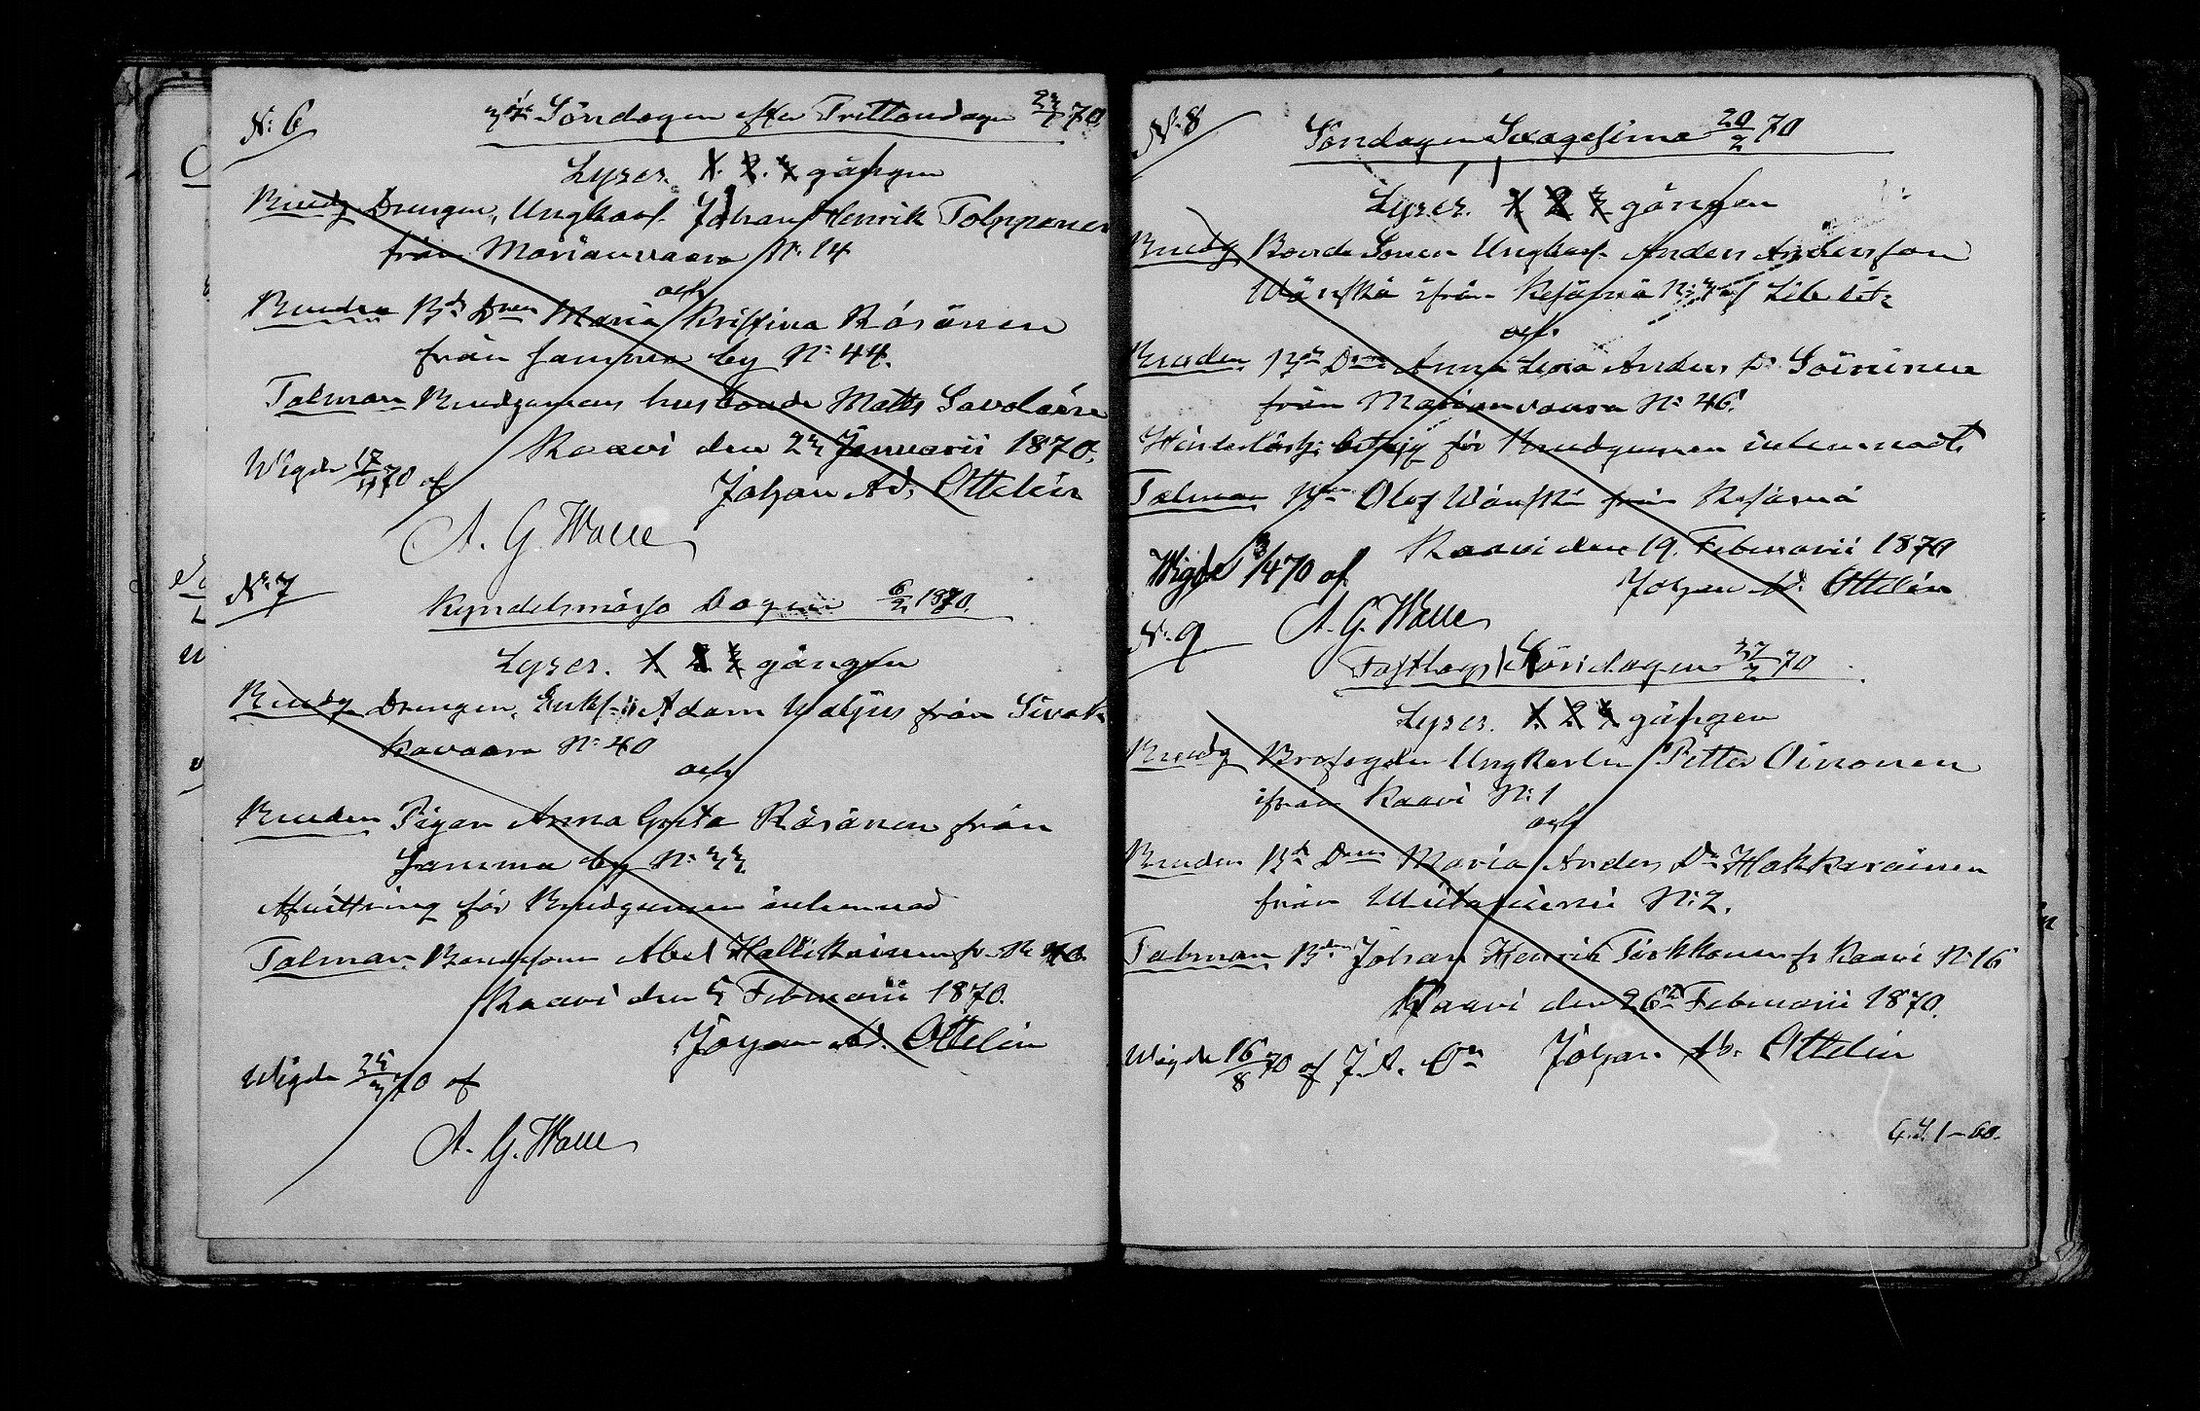 N: 6
Söndagen efter Trettondagen 23/1 70
Lyses. 1. 2. 3 gången
Brudg Drengen, Ungkarl. Johan Henrik Tolppanen
från Marianvaara N: 14
och
Bruden Bd Dren Maria Kristina Räsänen
från Jamma by N: 44.
Talman Brudgumens husbonde Matts Savolain
Kaavi den 23 Januarii 1870.
Wigde 17/4 70 af
Johan Ad. Ottelin
A. G. Walle
N: 7
Kyndelsmässo Dagen 6/2 1870.
Lyses. 1 2 3 gången
Brudg Drengen, Enkl. Adam Waljus från Sivak
kavaara N: 40
och
Bruden Pigan Anna Greta Räsänen från
Jamma by N: 33
Afvittring för Brudgumen inlemnad
Talman. Bondesonen Abel Hallikainen fr. N: 40
Kaavi den 5 Februarii 1870.
Johan Ad. Ottelin
Wigde 25/3 70 af
A. G. Walle
N: 8
Söndagen Sexagesima 20/2 70
Lyses. 1 2 3 gången
Brudg Bonde Sonen Ungkarl. Anders Andersson
Wänskä ifrån Libelitz
och
Bruden Bde Dren Anna Lisa Anders Dr Soininen
från Marianvaara N: 46.
Hinderlösh: betyg för Brudgumen inlemnadt
Talman Bden Olof Wänskä från
Kaavi den 19. Februarii 1870
Wigde 3/4 70 af
Johan Ad. Ottelin
A. G. Walle
N: 9
Fastlags Söndagen 27/2 70
Lyses. 1. 2 3 gången
Brudg Brofogden Ungkarlen Petter Oinonen
ifrån Kaavi N: 1
och
Bruden Bde Dren Maria Anders Dr Hakkarainen
från N: 2.
Talman. Bden Johan Henrik Tirkkonen fr Kaavi N: 16
Kaavi den 26 Februarii 1870.
Wigde 16/8 70 af J. A. On Johan Ad. Ottelin
1–60.